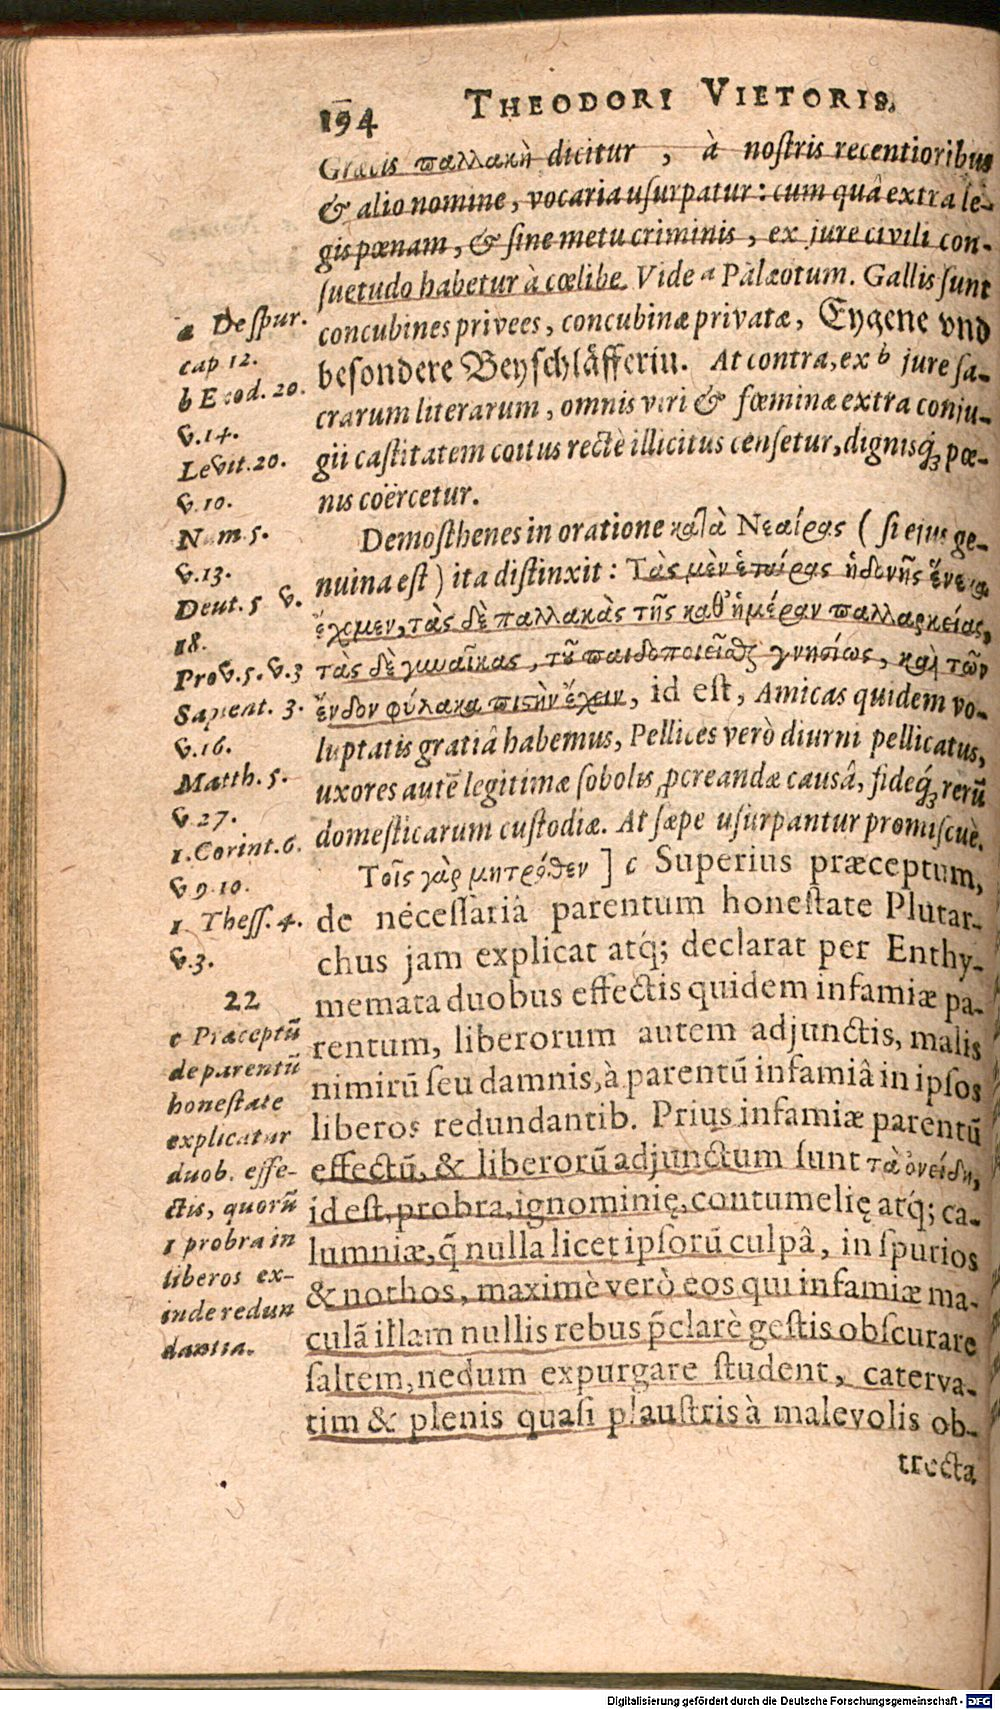 194
THEODORI VIETORIS.
Græcis παλλακὴ dicitur, à nostris recentioribus
& alio nomine, vocaria usurpatur: cum quâ extra le-
gis pœnam, & sine metu criminis, ex jure civili con-
suetudo habetur à cœlibe. Vide a Palæotum. Gallis sunt
concubines privees, concubinæ privatæ, Eygene vnd
besondere Beyschläfferin. At contra, ex b jure sa-
crarum literarum, omnis viri & fœminæ extra conju-
gii castitatem coitus rectè illicitus censetur, dignisq́; pœ-
nis coërcetur.
Demosthenes in oratione καὶὰ Νεαίρας (si ejus ge-
nuina est) ita distinxit: Τὰς μὲν ἑταίρας ἡδονῆς ἕνεκα
ἔχομεν, τὰς δὲ παλλακὰς τῆς καθ' ἡμέραν παλλαρκείας,
τὰς δὲ γυναῖκας, τοῦ παιδοποιεῖσθαι γνησίως, καὶ τῶν
ἔνδον φύλακα πιστὴν ἔχειν, id est, Amicas quidem vo-
luptatis gratiâ habemus, Pellices verò diurni pellicatus,
uxores autē legitimæ sobolis ꝓcreandæ causâ, fideq́; rerū
domesticarum custodiæ. At sæpe usurpantur promiscuè.
Τοῖς γὰρ μητρόθεν ] c Superius præceptum,
de necessariâ parentum honestate Plutar-
chus jam explicat atq́; declarat per Enthy-
memata duobus effectis quidem infamiæ pa-
rentum, liberorum autem adjunctis, malis
nimirū seu damnis, à parentū infamiâ in ipsos
liberos redundantib. Prius infamiæ parentū
effectū, & liberorū adjunctum sunt τὰ ὀνείδη,
id est, probra, ignominię, contumelię atq́; ca-
lumniæ, q̄ nulla licet ipsorū culpâ, in spurios
& nothos, maximè verò eos qui infamiæ ma-
culā illam nullis rebus p̄clarè gestis obscurare
saltem, nedum expurgare student, caterva-
tim & plenis quasi plaustris à malevolis ob-
trecta
a De spur.
cap 12.
b Exod. 20.
v. 14.
Levit. 20.
v. 10.
Num. 5.
v. 13.
Deut. 5 v.
18.
Prov. 5. v. 3
Sapient. 3.
v. 16.
Matth. 5.
v. 27.
1. Corint. 6.
v 9. 10.
1. Thess. 4.
v. 3.
22
c Præceptū
de parentū
honestate
explicatur
duob. effe-
ctis, quorū
1 probra in
liberos ex-
inde redun
dantia.
Digitalisierung gefördert durch die Deutsche Forschungsgemeinschaft - DFG